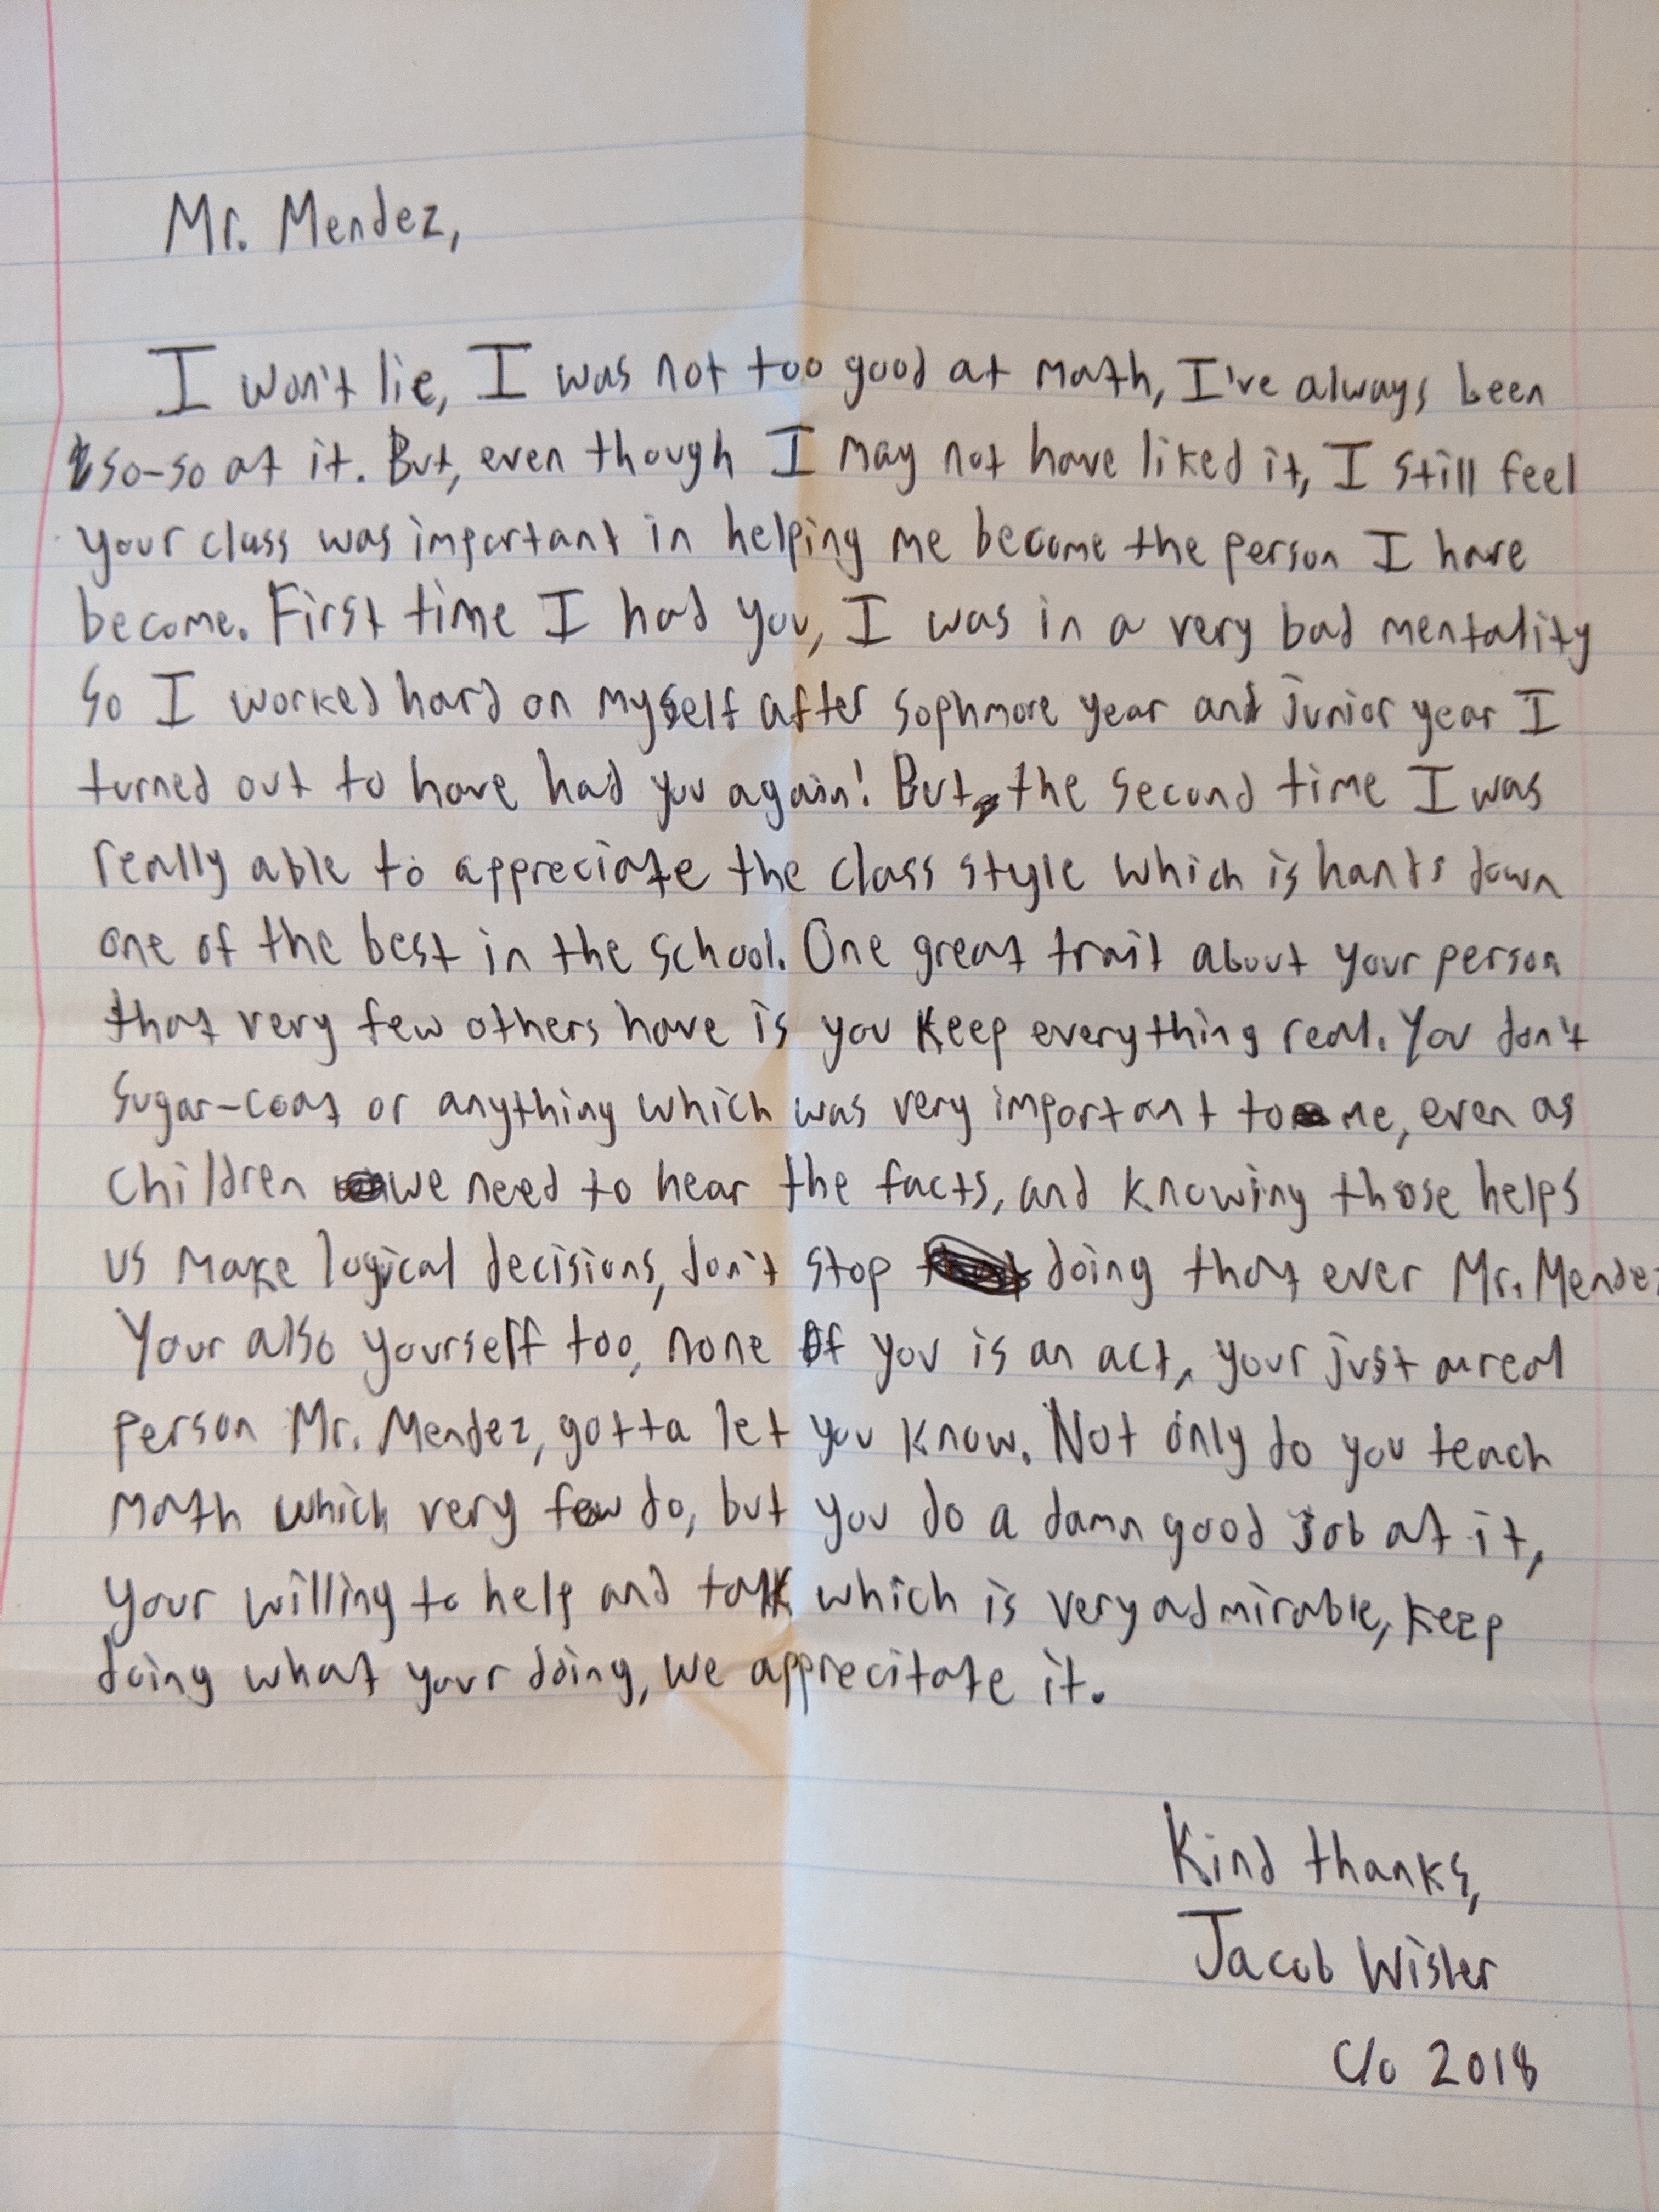 Mr. Mendez,
I won't lie, I was not too good at math, I've always been
so-so at it. But, even though I may not have liked it, I still feel
your class was important in helping me become the person I have
become. First time I had you, I was in a very bad mentality
So I worked hard on myself after sophmore year and junior year I
turned out to have had you again! But the second time I was
really able to appreciate the class style which is hands down
one of the best in the school. One great trait about your person
that very few others have is you keep everything real. You don't
sugar-coat or anything which was very important to me, even as
children we need to hear the facts, and knowing those helps
us make logical decisions, don't stop doing that ever Mr. Mendez
Your also yourself too, none of you is an act, your just a real
person Mr. Mendez, gotta let you know. Not only do you teach
math which very few do, but you do a damn good job at it,
your willing to help and talk which is very admirable, keep
doing what your doing, we apprecitate it.
Kind thanks,
Jacob Wisler
c/o 2018